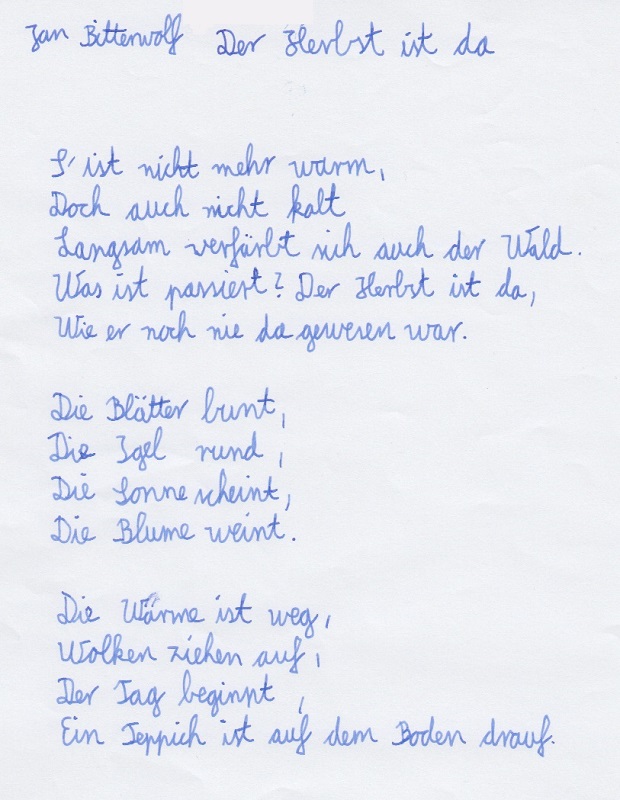 Jan Bittenwolf Der Herbst ist da
S' ist nicht mehr warm,
Doch auch nicht kalt
Langsam verfärbt sich auch der Wald.
Was ist passiert? Der Herbst ist da,
Wie er noch nie da gewesen war.
Die Blätter bunt,
Die Igel rund,
Die Sonne scheint,
Die Blume weint.
Die Wärme ist weg,
Wolken ziehen auf,
Der Tag beginnt,
Ein Teppich ist auf dem Boden drauf.